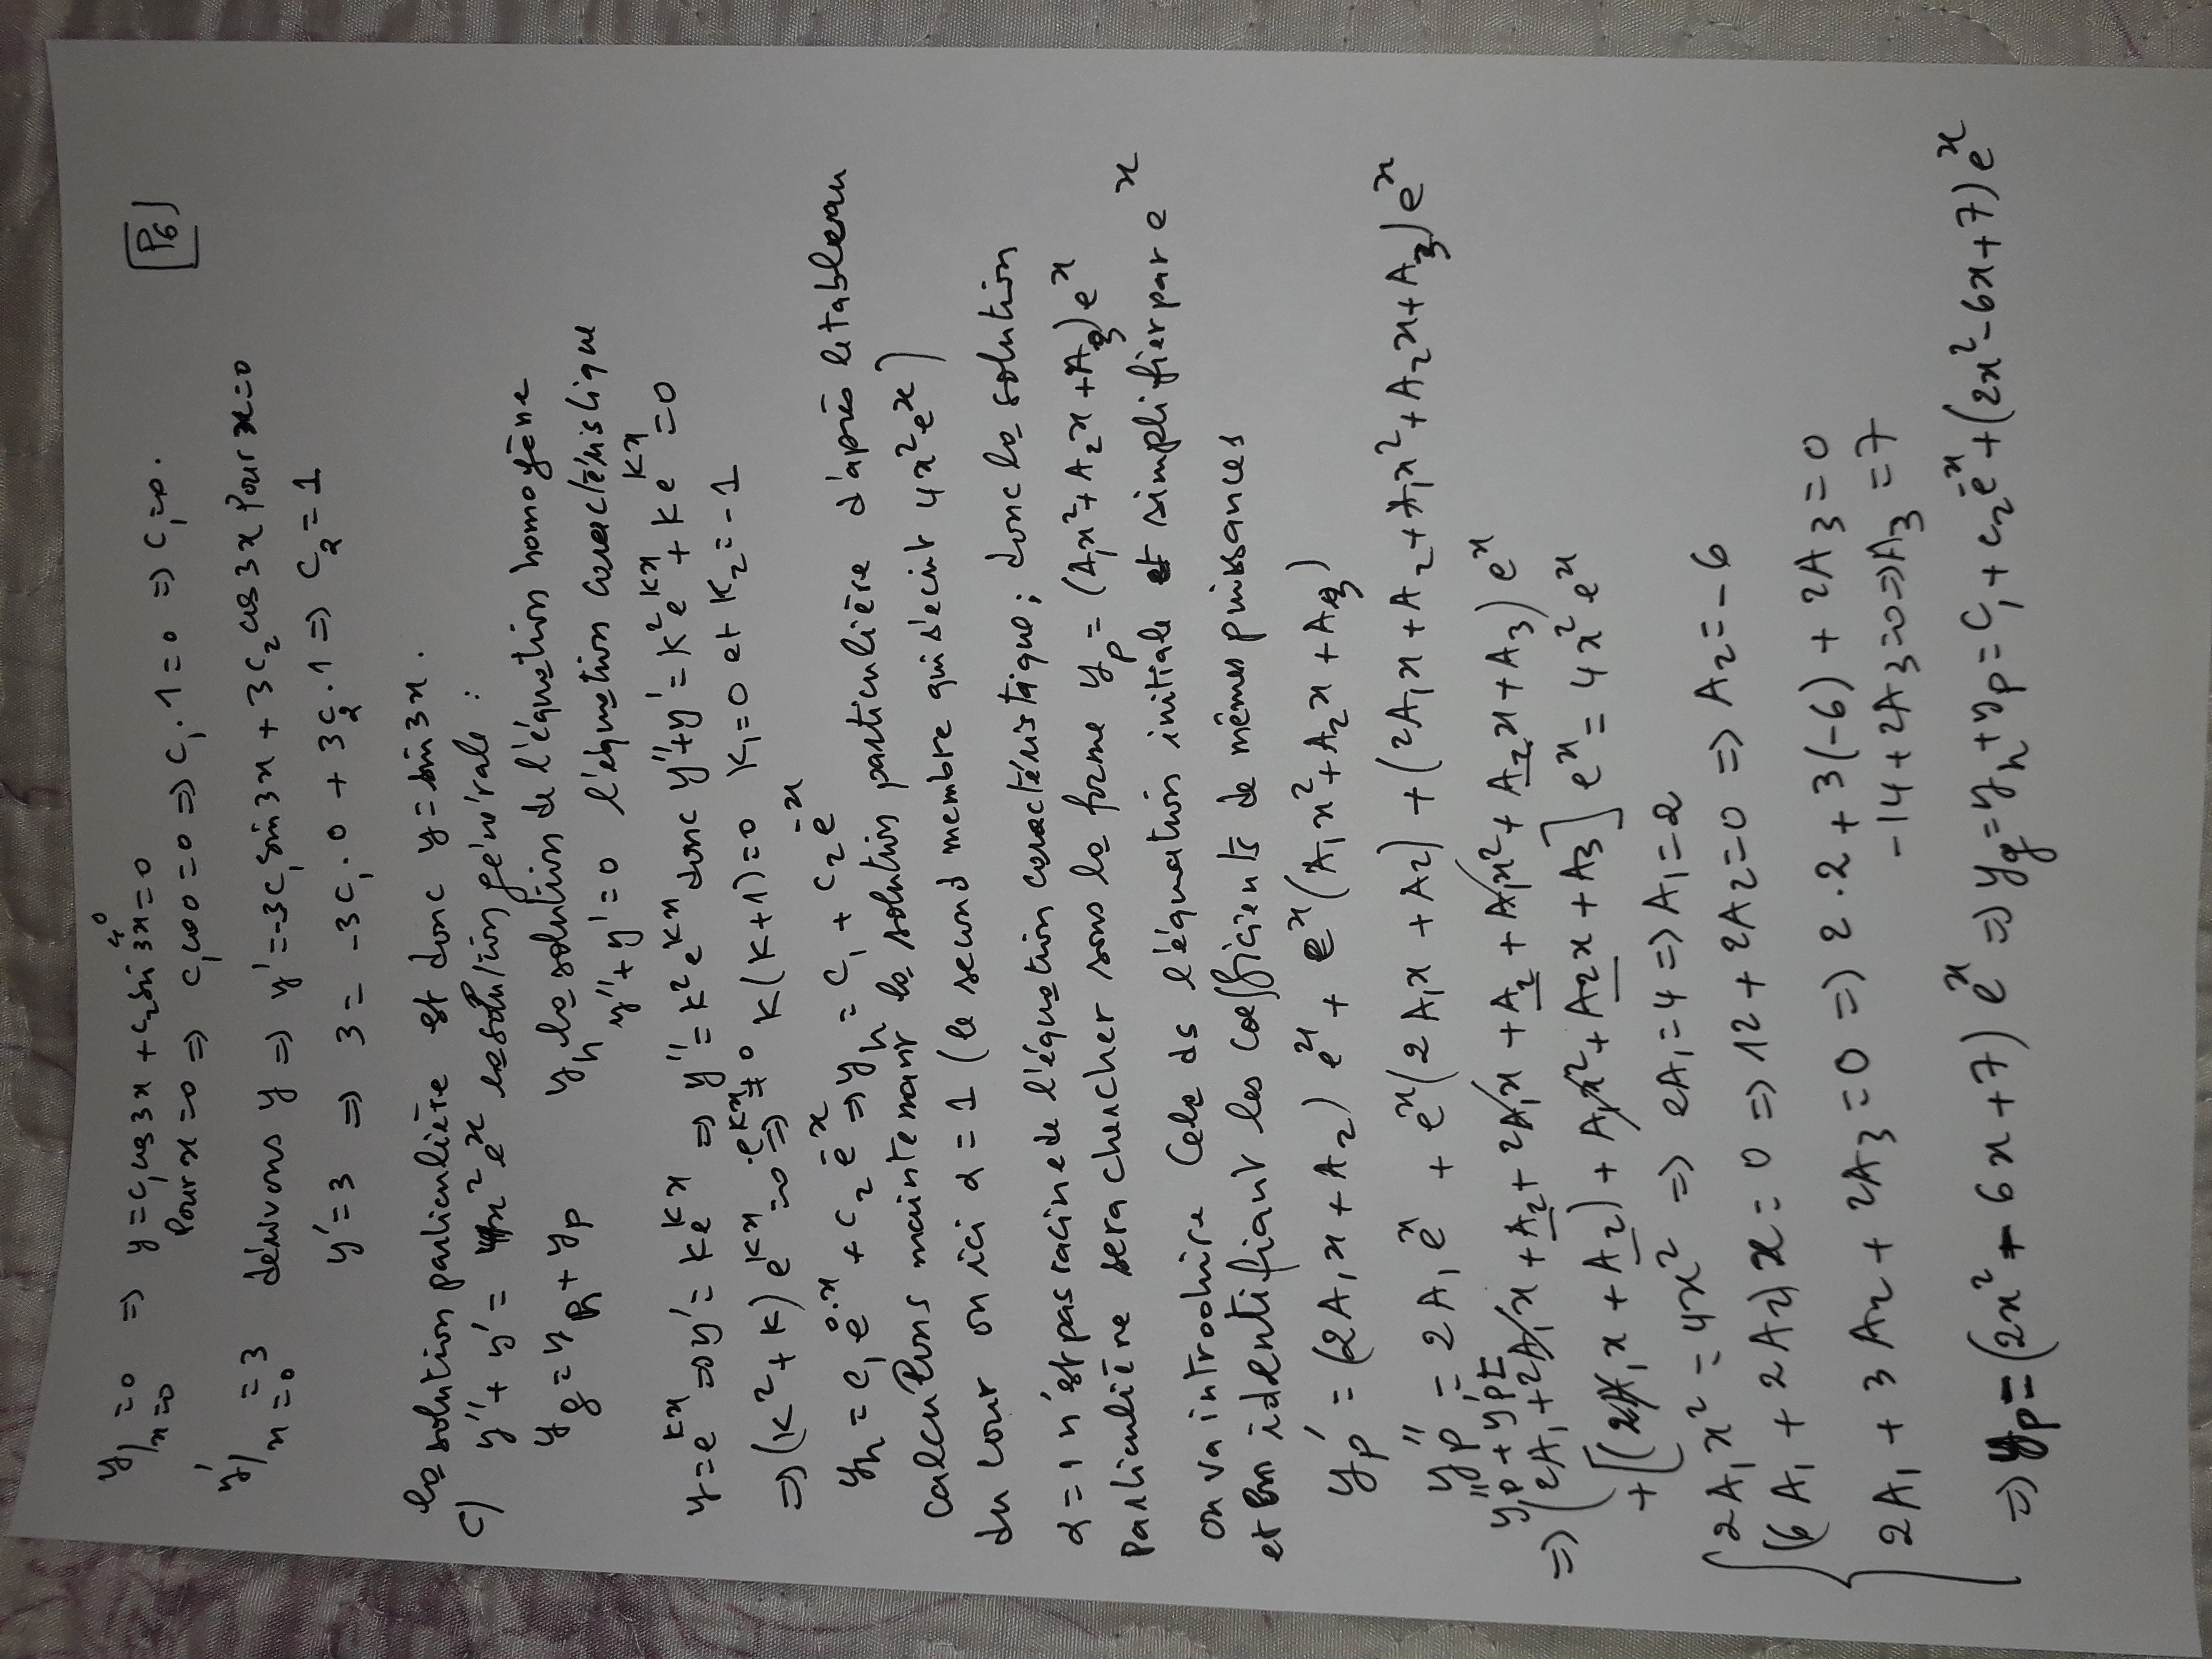 P6
y|x=0 =0 => y = c₁cos3x + c₂sin3x=0
Pour x=0 => c₁cos0=0 => c₁.1=0 => c₁=0.
y'|x=0 =3 dérivons y => y'=-3c₁sin3x + 3c₂cos3x Pour x=0
y'=3 => 3 = -3c₁.0 + 3c₂.1 => c₂=1
la solution particulière est donc y=sin3x.
c) y''+y'=4x²eˣ la solution générale :
yg = yh + yp yh la solution de l'équation homogène
y''+y'=0 l'équation caractéristique
y=eᵏˣ => y'=keᵏˣ => y''=k²eᵏˣ donc y''+y'=k²eᵏˣ+keᵏˣ=0
=> (k²+k)eᵏˣ=0 eᵏˣ≠0 => k(k+1)=0 k₁=0 et k₂=-1
yh = c₁e⁰·ˣ + c₂e⁻ˣ => yh = c₁ + c₂e⁻ˣ
Calculons maintenant la solution particulière d'après le tableau
du cour on ici α=1 (le second membre qui s'ecrit 4x²eˣ)
α=1 n'est pas racine de l'équation caractéristique; donc la solution
Particulière sera chercher sous la forme yp=(A₁x²+A₂x+A₃)eˣ
on va introduire Cela ds l'équation initiale et simplifier par eˣ
et en identifiant les coefficients de mêmes puissances
yp' = (2A₁x+A₂)eˣ + eˣ(A₁x²+A₂x+A₃)
yp'' = 2A₁eˣ + eˣ(2A₁x+A₂) + (2A₁x+A₂+A₁x²+A₂x+A₃)eˣ
yp''+yp'=
=> (2A₁+2A₁x+A₂+2A₁x+A₂+A₁x²+A₂x+A₃)eˣ
+[(2A₁x+A₂)+A₁x²+A₂x+A₃]eˣ=4x²eˣ
2A₁x²=4x² => 2A₁=4 => A₁=2
(6A₁+2A₂)x=0 => 12+2A₂=0 => A₂=-6
2A₁+3A₂+2A₃=0 => 2.2+3(-6)+2A₃=0
-14+2A₃=0 => A₃=7
=> yp=(2x²-6x+7)eˣ => yg=yh+yp=c₁+c₂e⁻ˣ+(2x²-6x+7)eˣ